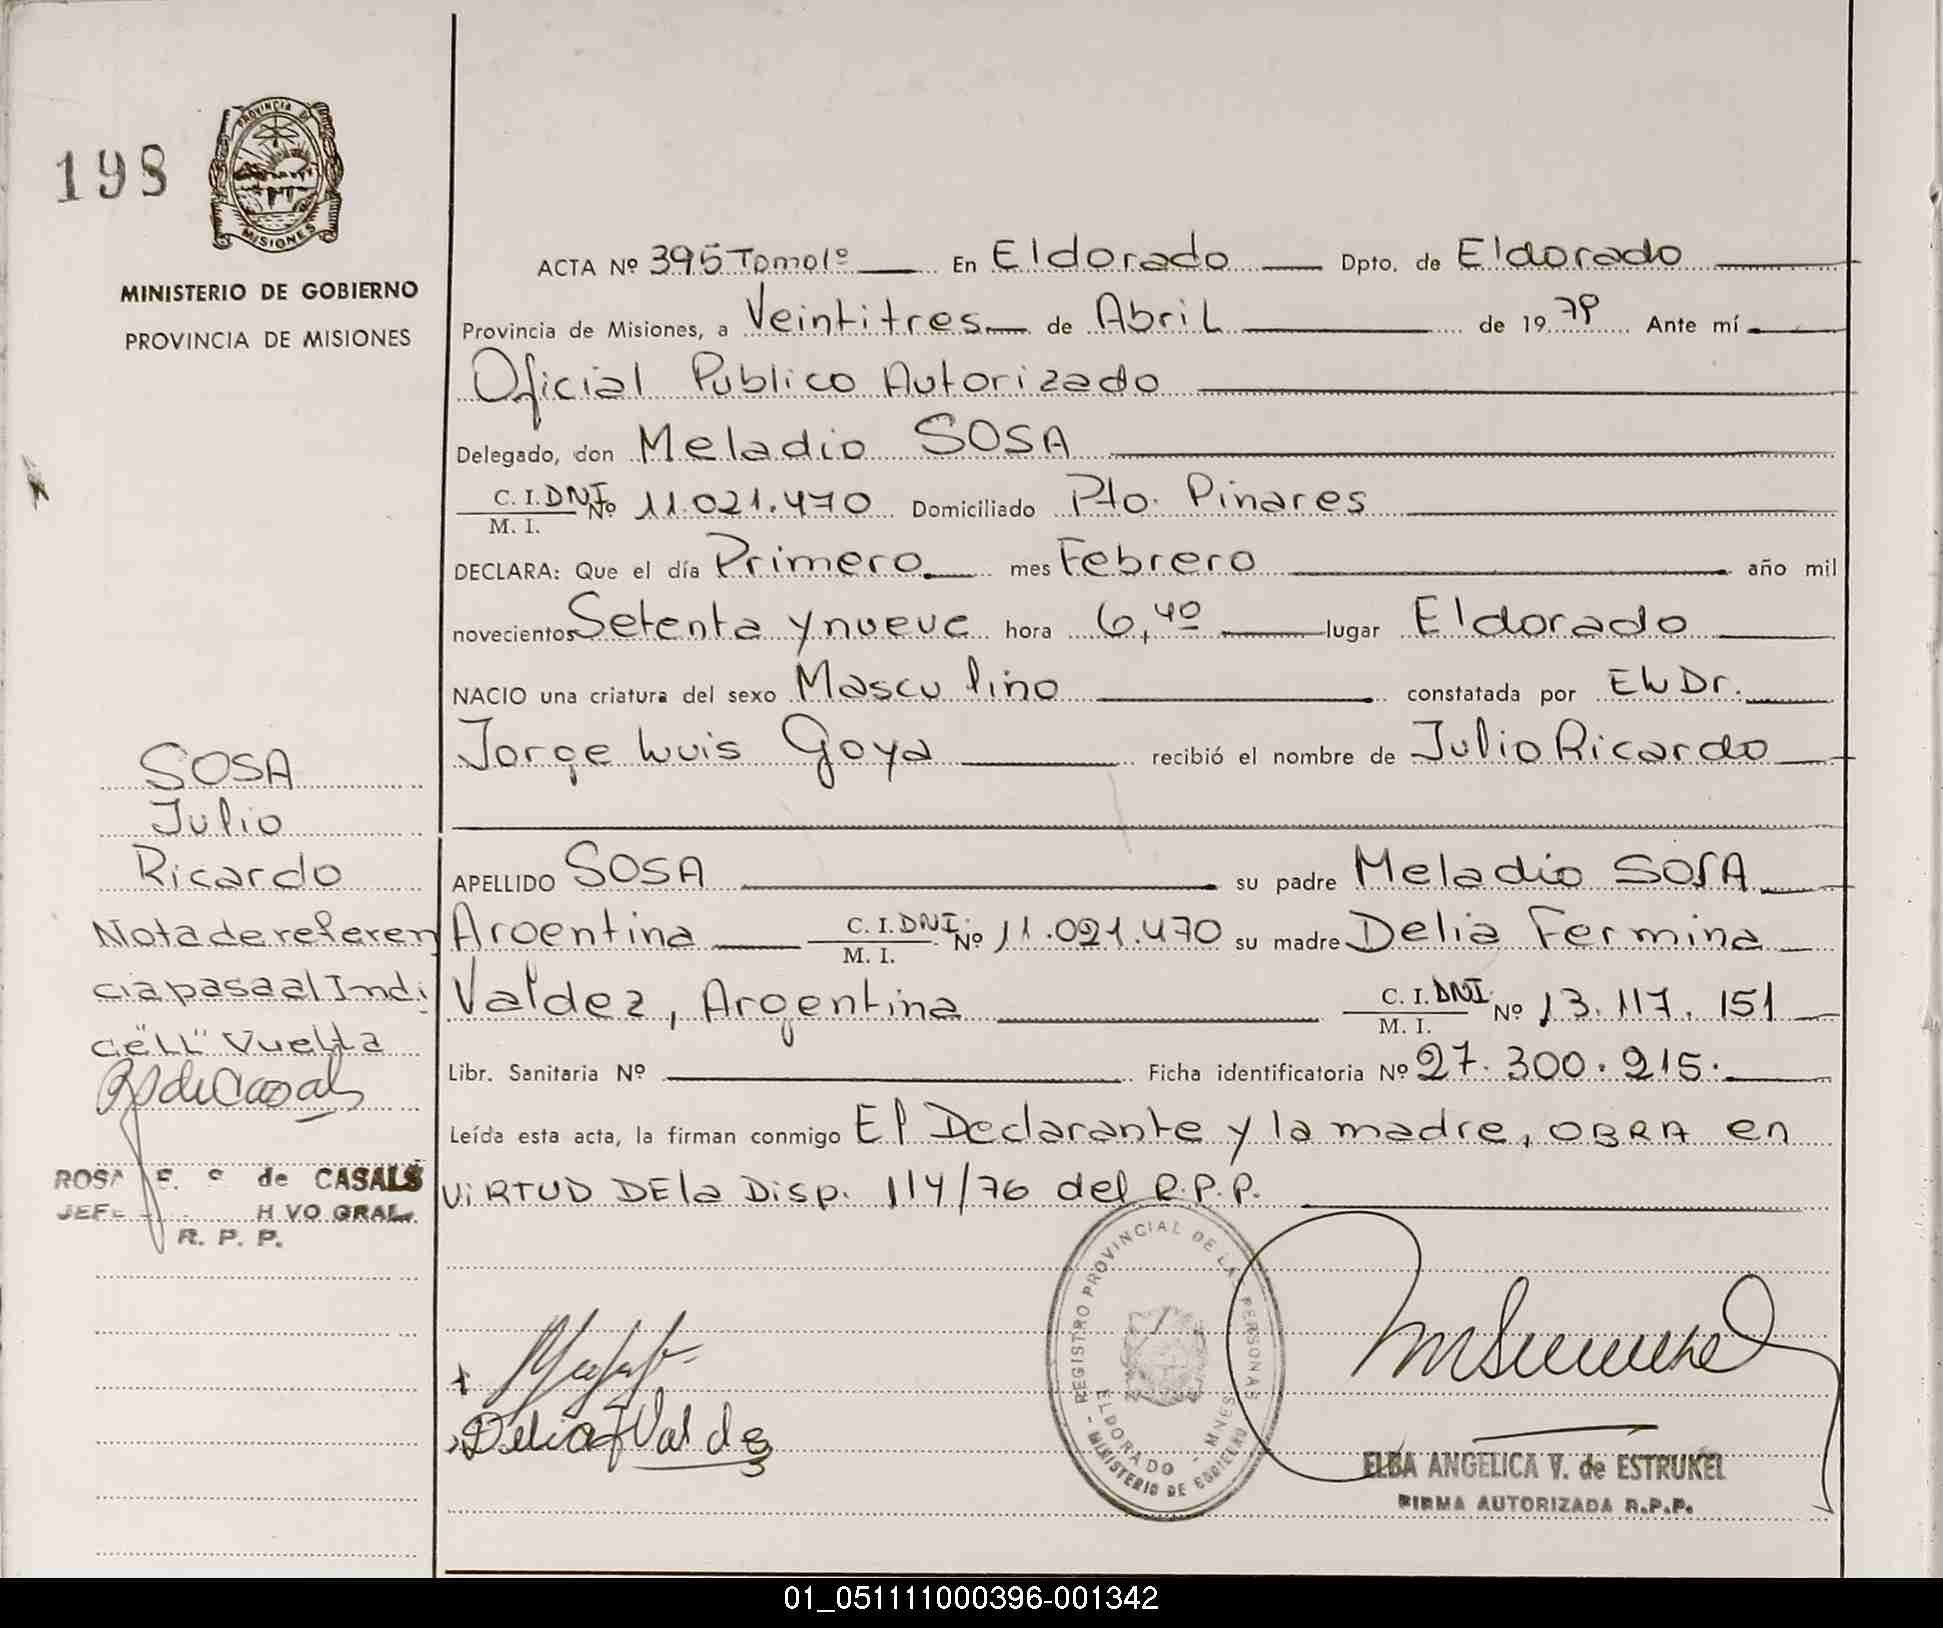 198
PROVINCIA DE
MISIONES
MINISTERIO DE GOBIERNO
PROVINCIA DE MISIONES
ACTA Nº 395 Tomo 1º En Eldorado Dpto. de Eldorado
Provincia de Misiones, a Veintitres de Abril de 19 79 Ante mí
Oficial Publico Autorizado
Delegado, don Meladio SOSA
C. I. DNI Nº 11.021.470 Domiciliado Pto. Pinares
M. I.
DECLARA: Que el día Primero mes Febrero año mil
novecientos Setenta y nueve hora 6,40 lugar Eldorado
NACIO una criatura del sexo Masculino constatada por El Dr.
Jorge Luis Goya recibió el nombre de Julio Ricardo
APELLIDO SOSA su padre Meladio SOSA
Argentina C. I. DNI. Nº 11.021.470 su madre Delia Fermina
M. I.
Valdez, Argentina C. I. DNI. Nº 13.117.151
M. I.
Libr. Sanitaria Nº Ficha identificatoria Nº 27.300.215.
Leída esta acta, la firman conmigo El Declarante y la madre, OBRA en
VIRTUD DE la Disp. 114/76 del R.P.P.
SOSA
Julio
Ricardo
Nota de referen
cia pasa al Indi
ce "LL" Vuelta
RSdeCasals
ROSA E. S de CASALS
JEFE H VO GRAL.
R. P. P.
Delia F Valdez
- REGISTRO PROVINCIAL DE LAS PERSONAS
ELDORADO - MNES
- MINISTERIO DE GOBIERNO
ELBA ANGELICA V. de ESTRUKEL
FIRMA AUTORIZADA R.P.P.
01_051111000396-001342